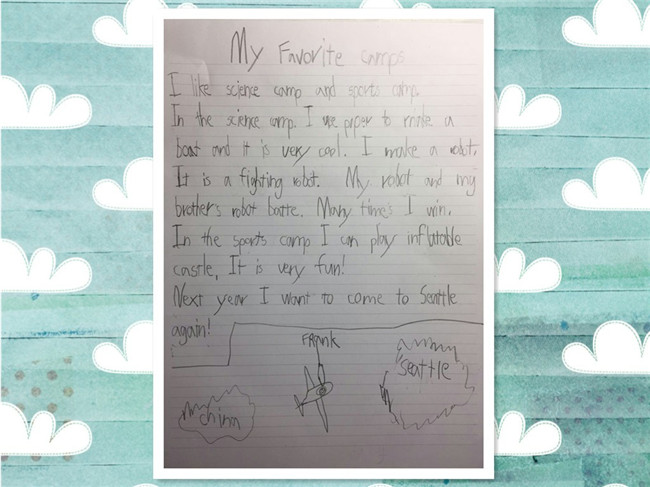 My Favorite camps
I like science camp and sports camp.
In the science camp. I use paper to make a
boat and it is very cool. I make a robot.
It is a fighting robot. My robot and my
brother's robot batte. Many time's I win.
In the sports camp I can play inflatable
castle, It is very fun!
Next year I want to come to Seattle
again!
FRANK
Seattle
china